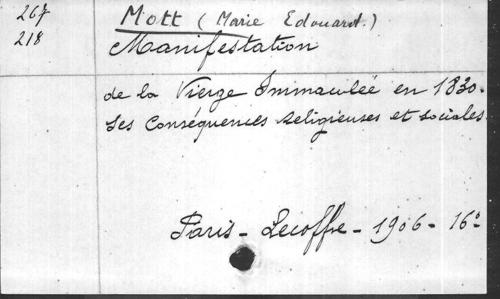 267
218
Mott (Marie Edouard.)
Manifestation
de la Vierge Immaculée en 1830.
Ses Conséquences religieuses et sociales.
Paris - Lecoffre - 1906 - 16°